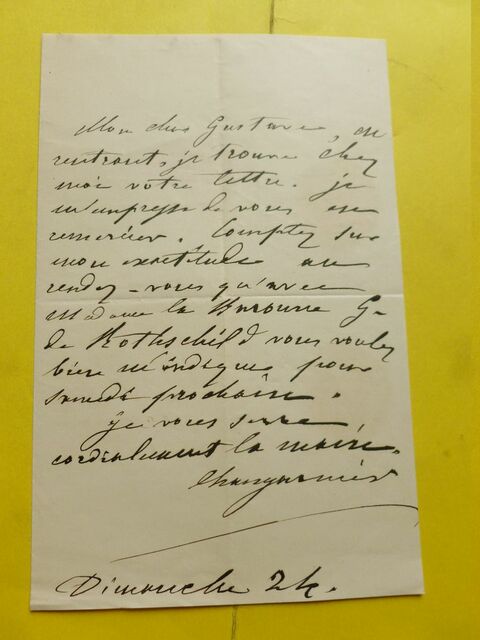 Mon cher Gustave, en
rentrant, je trouve chez
moi votre lettre. je
m'empresse de vous en
remercier. Comptez sur
mon exactitude au
rendez-vous qu'avec
Madame la Baronne G.
de Rothschild vous voulez
bien m'indiquer pour
samedi prochain.
je vous serre
cordialement la main.
Changarnier
Dimanche 24.